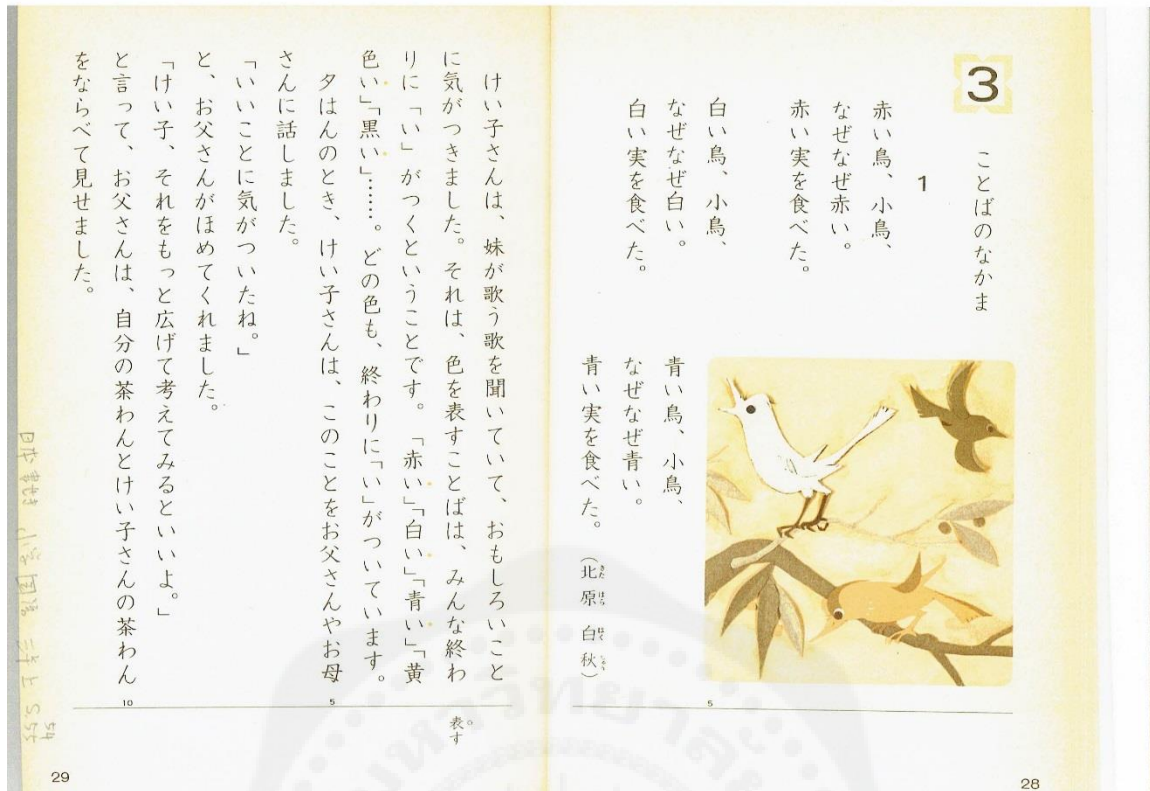 3
ことばのなかま
1
赤い鳥、小鳥、
なぜなぜ赤い。
赤い実を食べた。
白い鳥、小鳥、
なぜなぜ白い。
白い実を食べた。
青い鳥、小鳥、
なぜなぜ青い。
青い実を食べた。
(北原白秋)
きたはらはくしゅう
5
28
けい子さんは、妹が歌う歌を聞いていて、おもしろいこと
に気がつきました。それは、色を表すことばは、みんな終わ
りに「い」がつくということです。「赤い」「白い」「青い」「黄
色い」「黒い」……。どの色も、終わりに「い」がついています。
夕はんのとき、けい子さんは、このことをお父さんやお母
さんに話しました。
「いいことに気がついたね。」
と、お父さんがほめてくれました。
「けい子、それをもっと広げて考えてみるといいよ。」
と言って、お父さんは、自分の茶わんとけい子さんの茶わん
をならべて見せました。
表す
5
10
29